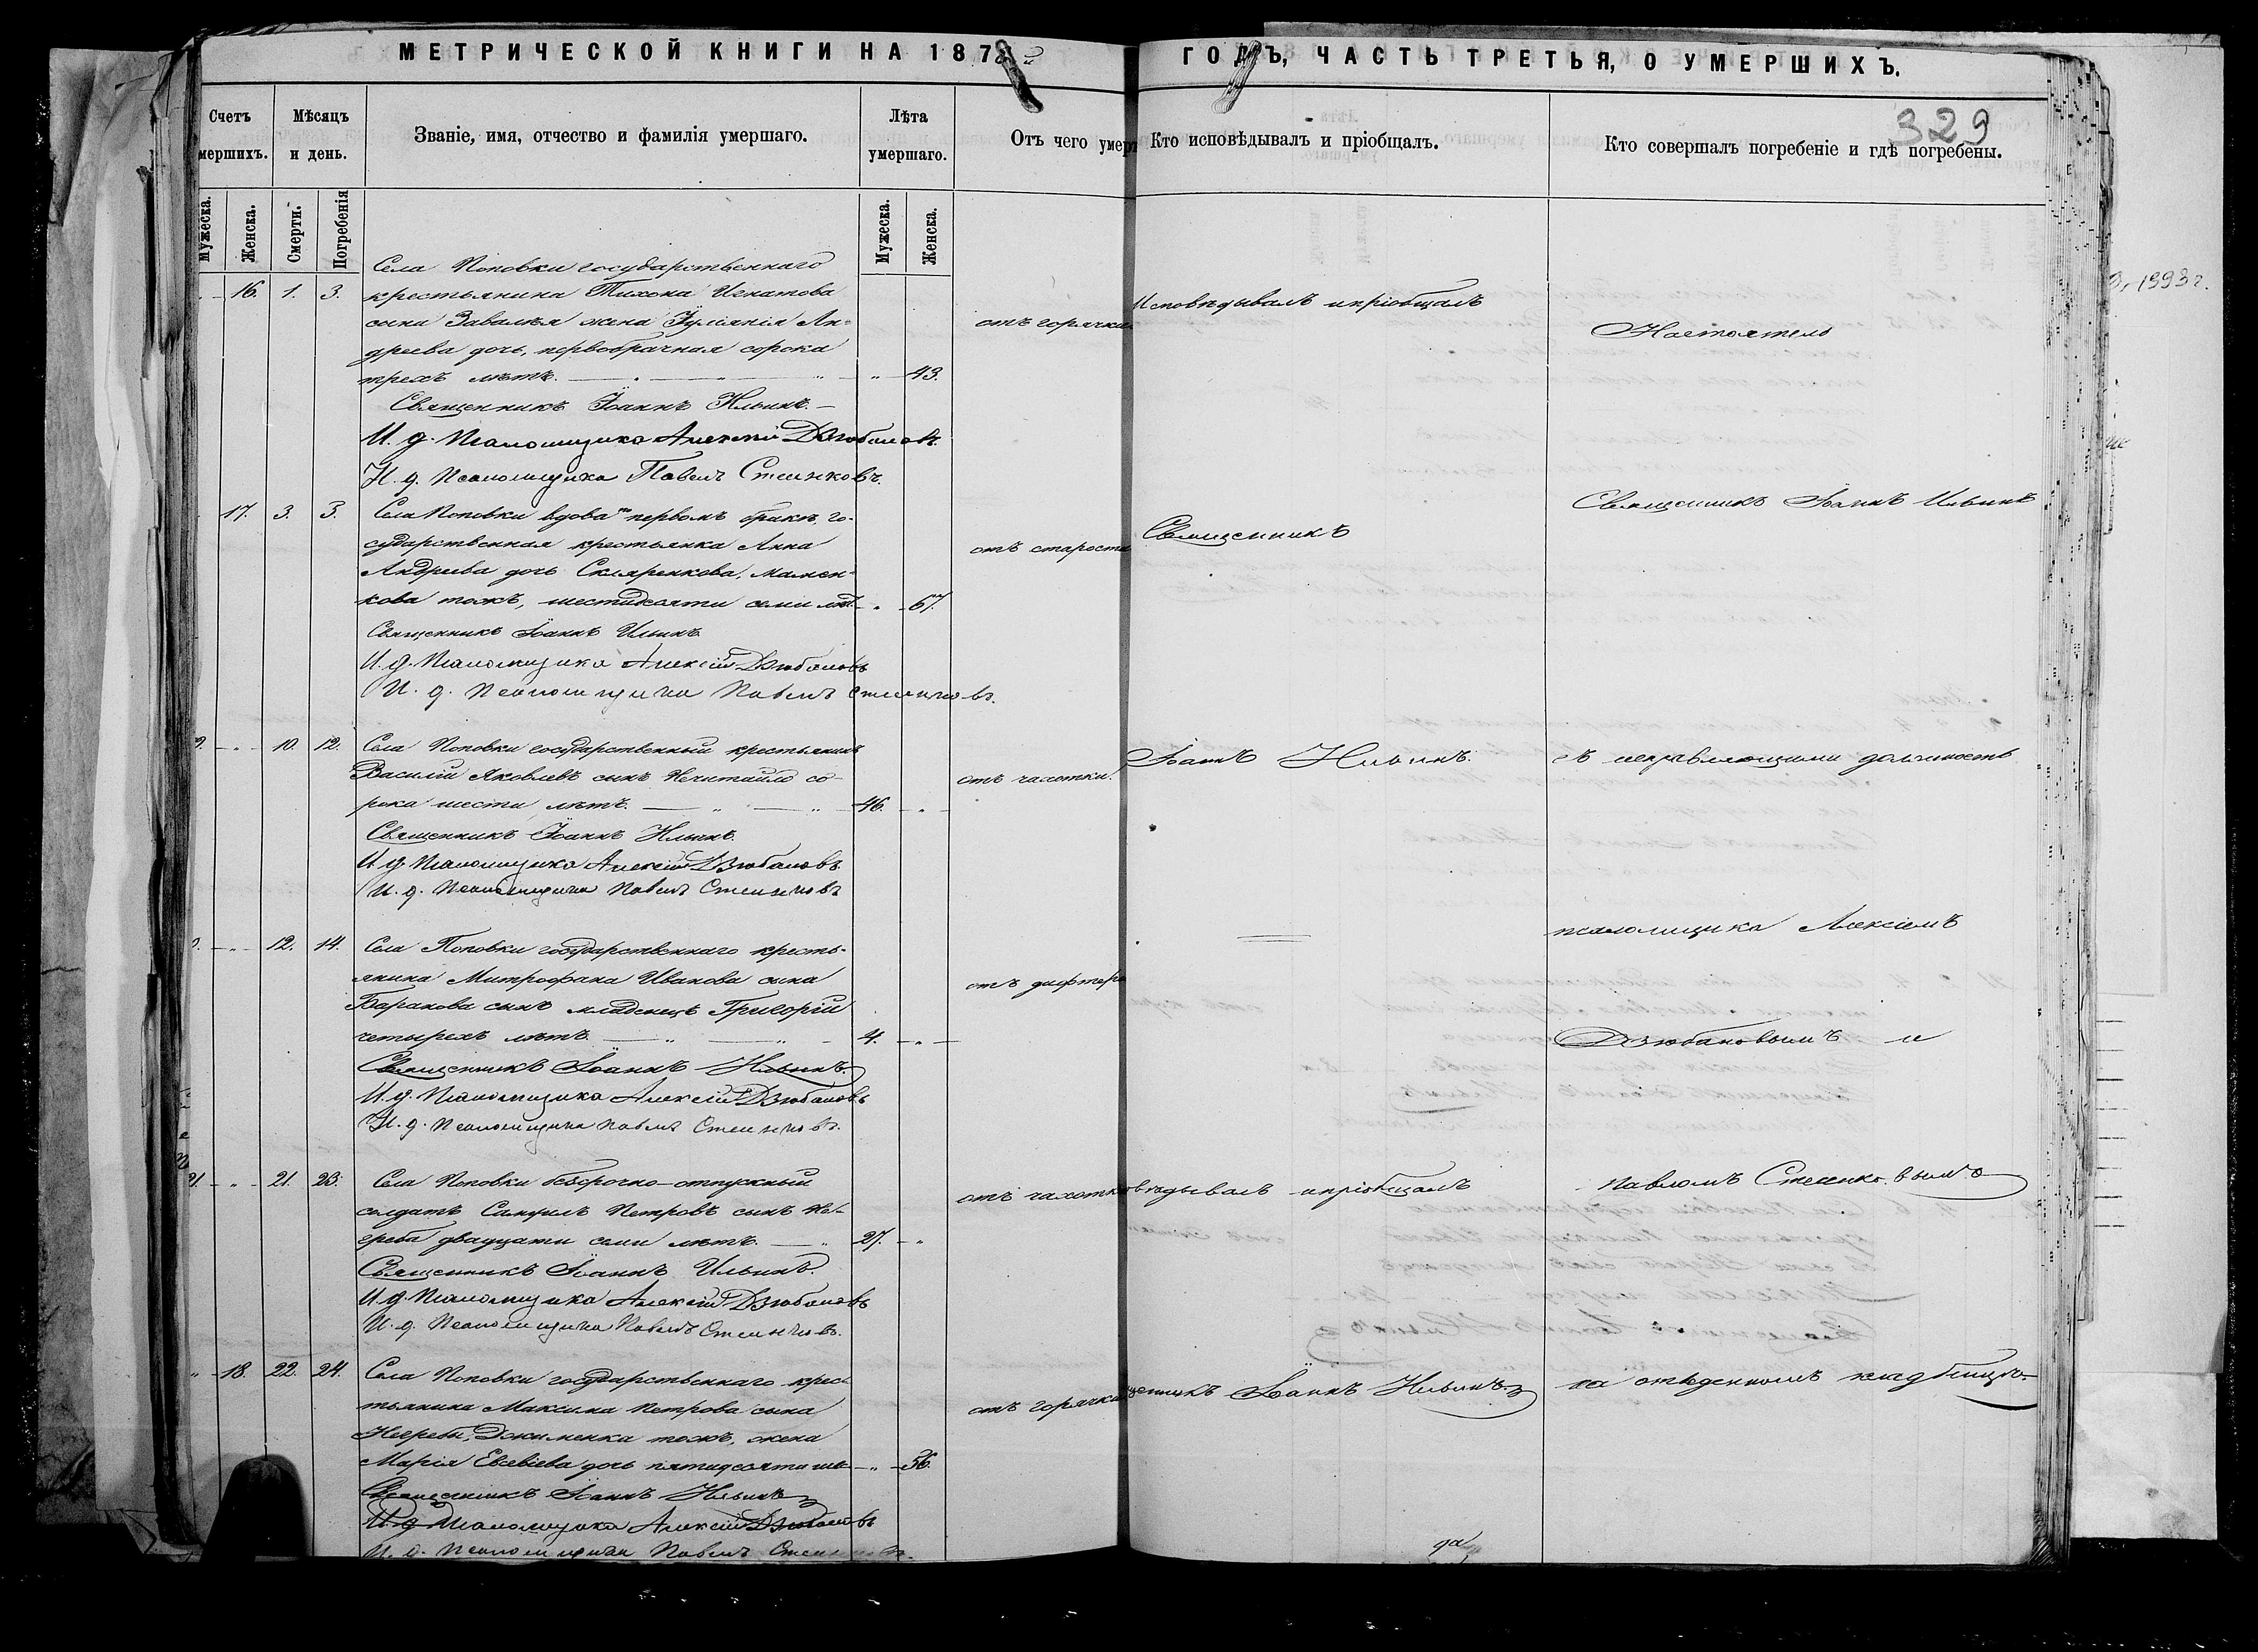 МЕТРИЧЕСКОЙ КНИГИ НА 187
ГОДЪ, ЧАСТЬ ТРЕТЬЯ, О УМЕРШИХЪ.
329
Счетъ
мершихъ.
Мѣсяцъ
и день.
Званіе, имя, отчество и фамилія умершаго.
Лѣта
умершаго.
Отъ чего умер
Кто исповѣдывалъ и пріобщалъ.
Кто совершалъ погребеніе и гдѣ погребены.
Мужеска.
Женска.
Смерти.
Погребенія
Мужеска.
Женска.
16. 1. 3.
Села Поповки государственнаго
крестьянина Тихона Игнатова
сына Завалѣя жена Іуліанія Ан-
дреева дочь, первобрачная сорока
трехъ лѣтъ. 43.
отъ горячки
Священникъ Іоаннъ Ильинъ.
И. д. Псаломщика Алексій Дзюбановъ.
И. д. Псаломщика Павелъ Стеценковъ.
17. 3. 3.
Села Поповки вдова первомъ бракѣ, го-
сударственная крестьянка Анна
Андреева дочь Скляренкова,
кова тожъ, шестидесяти семи лѣт. 67.
отъ старости
Священникъ Іоаннъ Ильинъ.
И. д. Псаломщика Алексій Дзюбановъ
И. д. Псаломщика Павелъ Стеценковъ.
10. 12.
Села Поповки государственный крестьянинъ
Василій Яковлевъ сынъ Нечитайло со-
рока шести лѣтъ. 46.
отъ чахотки.
Священникъ Іоаннъ Ильинъ.
И. д. Псаломщика Алексій Дзюбановъ.
И. д. Псаломщика Павелъ Стеценковъ
12. 14.
Села Поповки государственнаго кресть-
янина Митрофана Иванова сына
Баранова сынъ младенецъ Григорій
четырехъ лѣтъ. 4.
отъ дифтери
Священникъ Іоаннъ Ильинъ.
И. д. Псаломщика Алексій Дзюбановъ
И. д. Псаломщика Павелъ Стеценковъ.
21. 21. 23.
Села Поповки безсрочно-отпускный
солдатъ Самуилъ Петровъ сынъ Не-
греба двадцати семи лѣтъ. 27.
отъ чахотк
Священникъ Іоаннъ Ильинъ.
И. д. Псаломщика Алексій Дзюбановъ
И. д. Псаломщика Павелъ Стеценковъ.
18. 22. 24.
Села Поповки государственнаго крес-
тьянина Максима Петрова сына
Негребы, тожъ, жена
Марія Евсевіева дочь пятидесяти ше 56.
отъ горячки
Священникъ Іоаннъ Ильинъ
И. д. Псаломщика Алексій Дзюбановъ
И. д. Псаломщика Павелъ
Исповѣдывалъ и пріобщалъ
Священникъ
Іоаннъ Ильинъ.
вѣдывалъ и пріобщалъ
щенникъ Іоаннъ Ильинъ.
Настоятель
Священникъ Іоаннъ Ильинъ
съ исправляющими должность
псаломщика Алексіемъ
Дзюбановымъ и
Павломъ Стеценковымъ
на отведенномъ кладбищѣ.
1993 г.